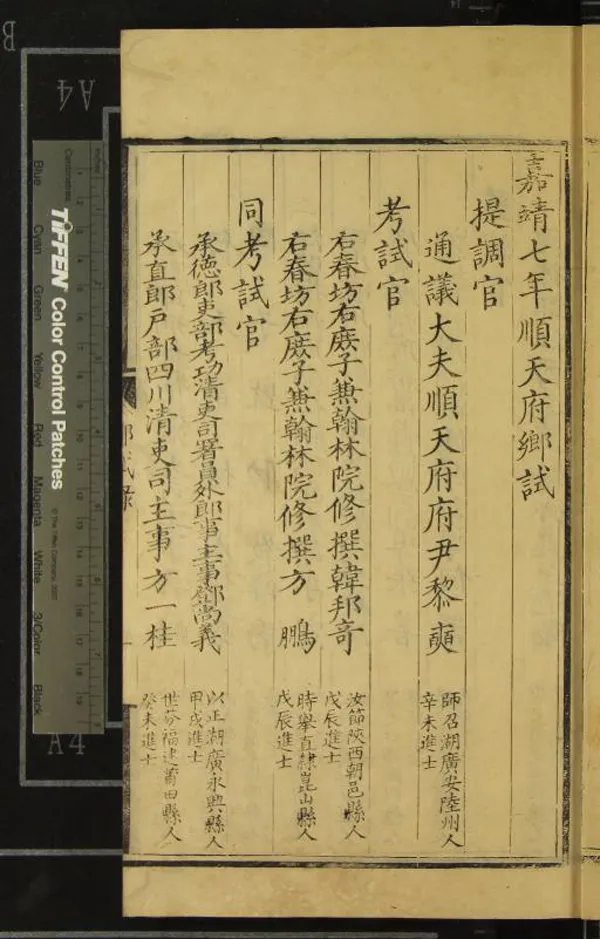 嘉靖七年順天府鄉試
提調官
通議大夫順天府府尹黎奭
師召湖廣安陸州人
辛未進士
考試官
右春坊右庶子兼翰林院修撰韓邦奇
汝節陝西朝邑縣人
戊辰進士
右春坊右庶子兼翰林院修撰方　鵬
時舉直隸崑山縣人
戊辰進士
同考試官
承德郎吏部考功清吏司署員外郎事主事鄧尚義
以正湖廣永興縣人
甲戌進士
承直郎戶部四川清吏司主事方一桂
世芬福建莆田縣人
癸未進士
A4
B
A4
Centimetres
Inches
TIFFEN Color Control Patches
© The Tiffen Company, 2007
Blue
Cyan
Green
Yellow
Red
Magenta
White
3/Color
Black